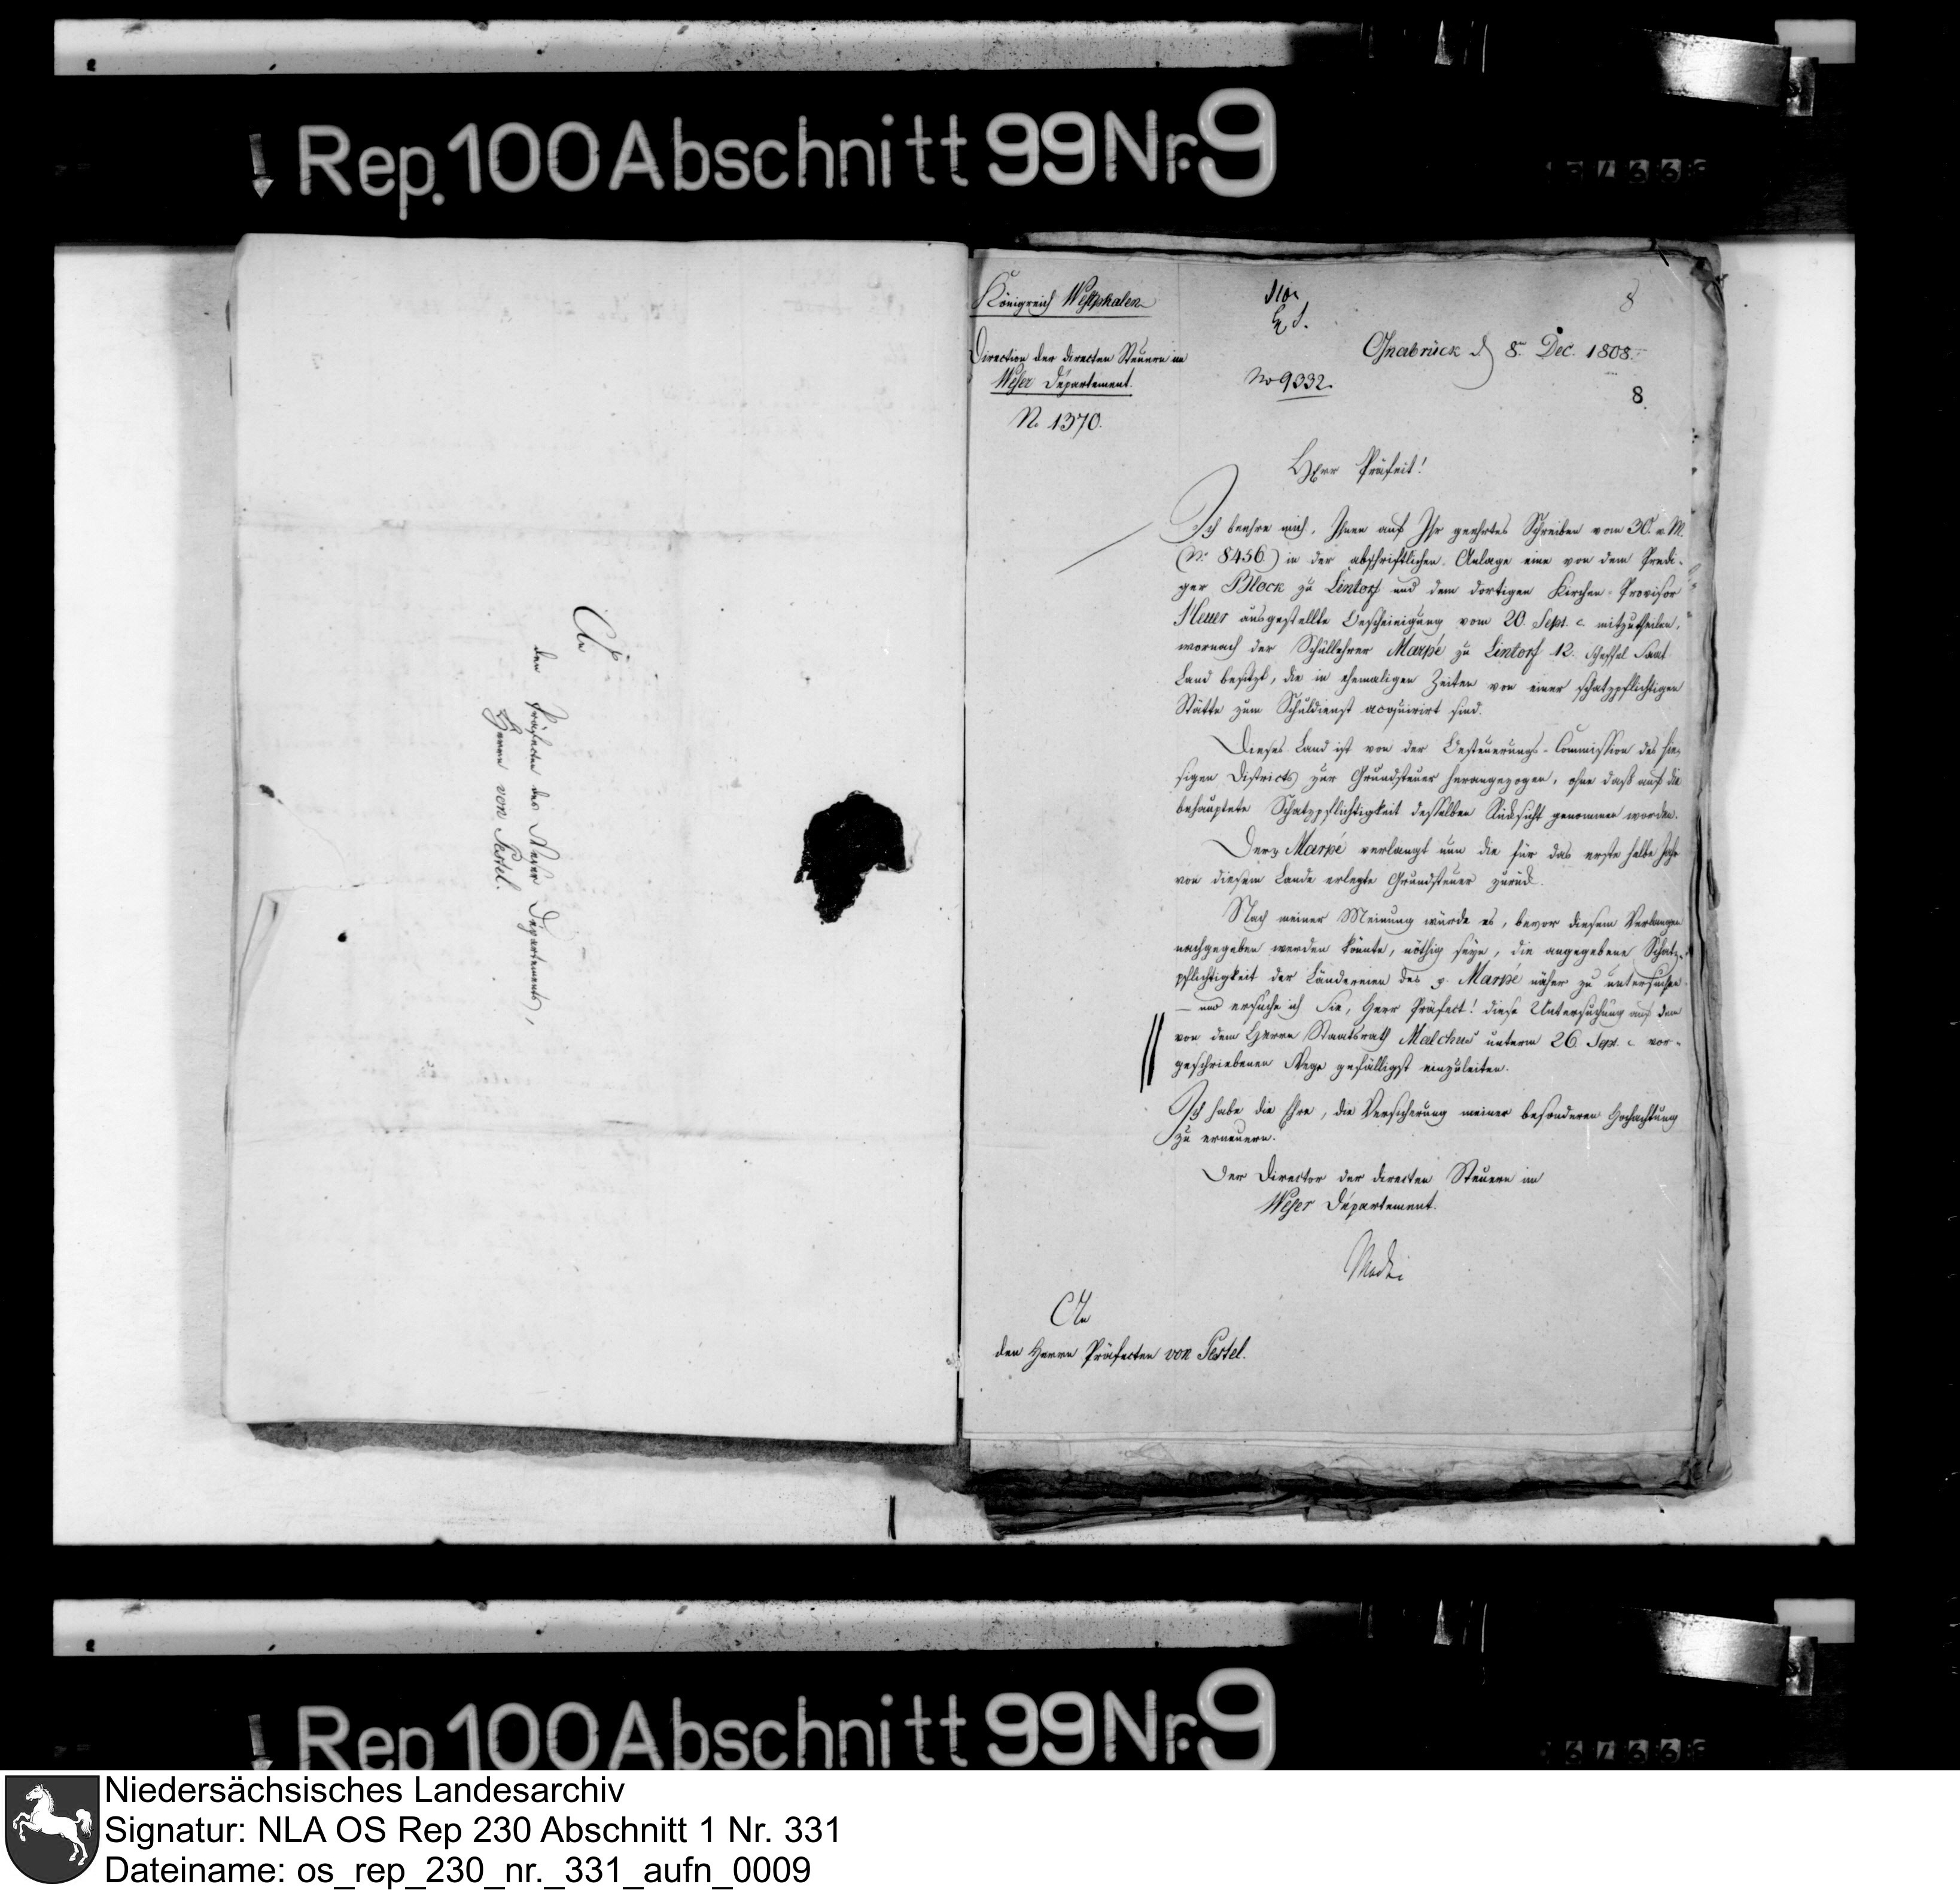 Rep. 100 Abschnitt 99 Nr. 9
An
den Präfecten des Weser Departements,
Herrn von Pestel.
Königreich Westphalen
Direction der directen Steuern im
Weser Departement.
N. 1370.
No 9332.
8
Osnabrück d 8n Dec. 1808.
8.
Herr Präfect!
Ich beehre mich, Ihnen auf Ihr geehrtes Schreiben vom 30. v. M.
(N. 8456) in der abschriftlichen Anlage eine von dem Predi-
ger Block zu Lintorf und dem dortigen Kirchen-Provisor
Meuer ausgestellte Bescheinigung vom 20. Sept. c. mitzutheilen,
wornach der Schullehrer Marpé zu Lintorf 12. Scheffel Saat
Land besitzt, die in ehemaligen Zeiten von einer schatzpflichtigen
Stätte zum Schuldienst acquirirt sind.
Dieses Land ist von der Besteuerungs-Commission des hie-
sigen Districts zur Grundsteuer herangezogen, ohne daß auf die
behauptete Schatzpflichtigkeit desselben Rücksicht genommen worden.
Der p Marpé verlangt nun die für das erste halbe Jahr
von diesem Lande erlegte Grundsteuer zurück.
Nach meiner Meinung würde es, bevor diesem Verlangen
nachgegeben werden könnte, nöthig seyn, die angegebene Schatz-
pflichtigkeit der Ländereien des p. Marpé näher zu untersuchen
– und ersuche ich Sie, Herr Präfect! diese Untersuchung auf dem
von dem Herrn Staatsrath Malchus unterm 26 Sept. c vor-
geschriebenen Wege gefälligst einzuleiten.
Ich habe die Ehre, die Versicherung meiner besonderen Hochachtung
zu erneuern.
Der Director der directen Steuern im
Weser Departement.
An
den Herrn Präfecten von Pestel.
Rep 100 Abschnitt 99 Nr. 9
Niedersächsisches Landesarchiv
Signatur: NLA OS Rep 230 Abschnitt 1 Nr. 331
Dateiname: os_rep_230_nr._331_aufn_0009